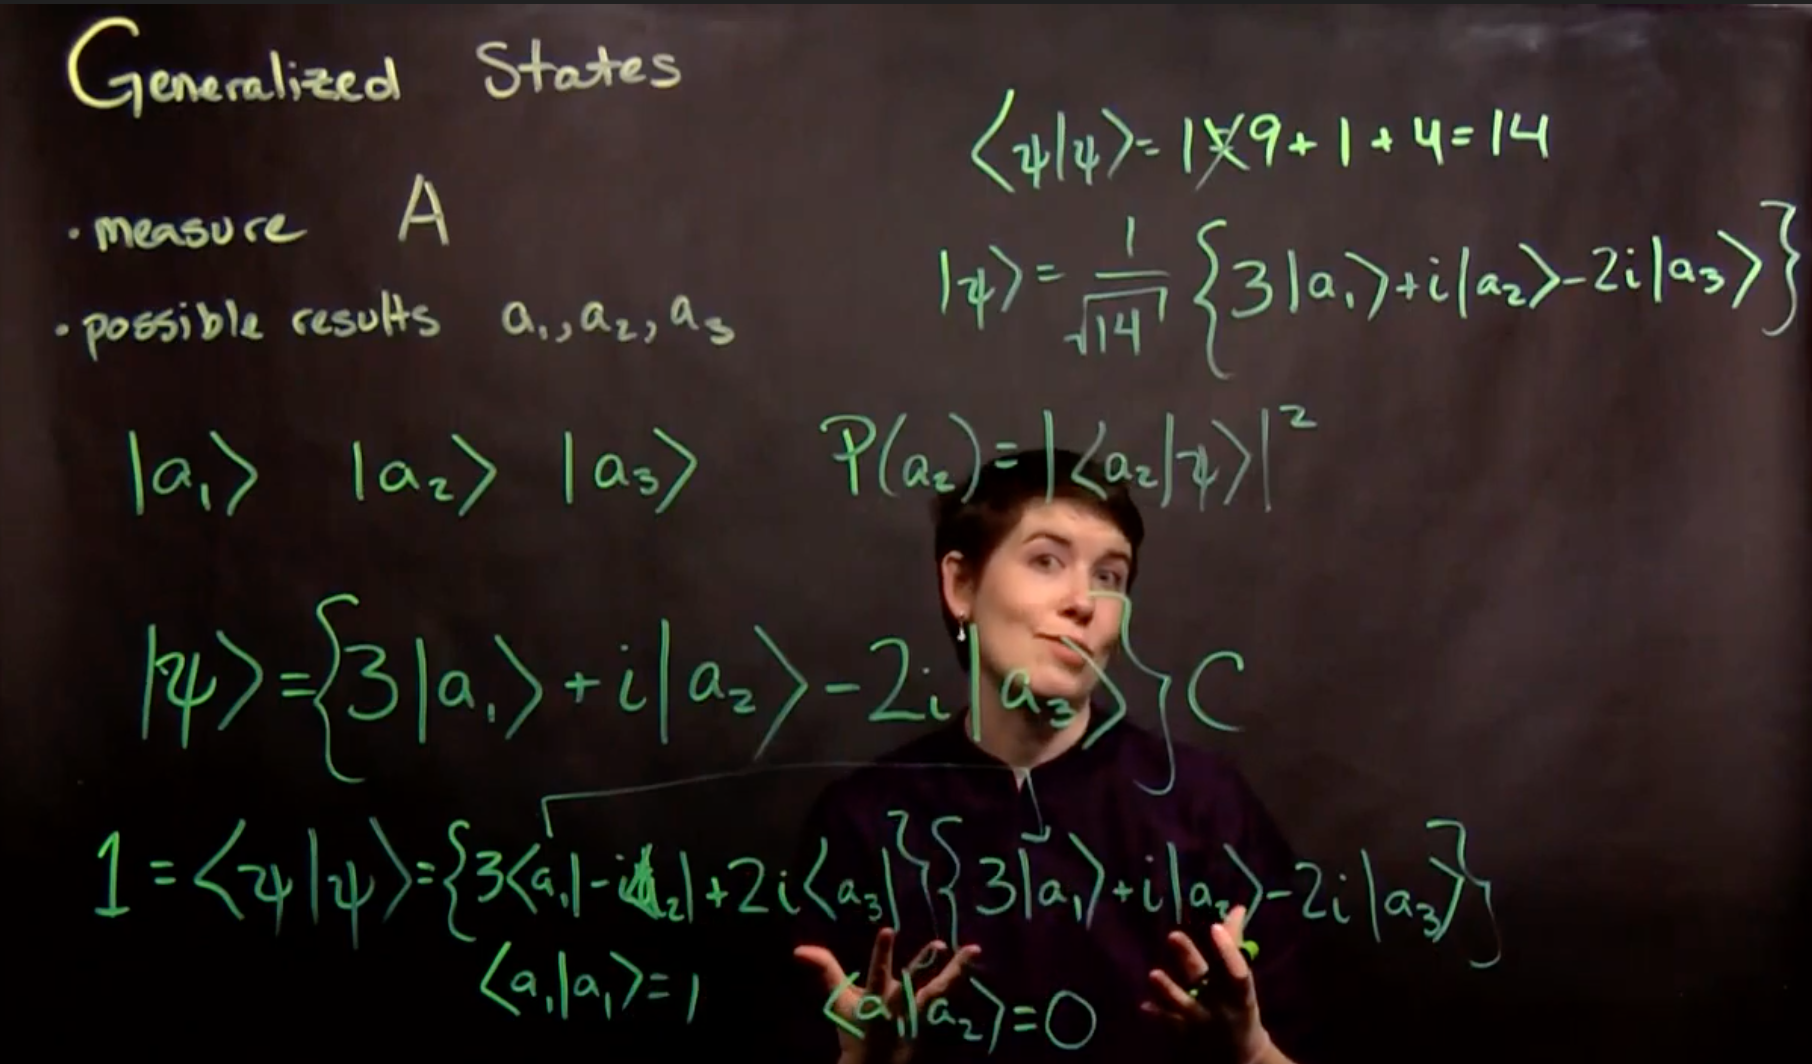 Generalized States
• measure A
• possible results a₁, a₂, a₃
|a₁⟩ |a₂⟩ |a₃⟩
⟨ψ|ψ⟩ = 1 9 + 1 + 4 = 14
|ψ⟩ = 1/√14 {3|a₁⟩ + i|a₂⟩ - 2i|a₃⟩}
P(a₂) = |⟨a₂|ψ⟩|²
|ψ⟩ = {3|a₁⟩ + i|a₂⟩ - 2i|a₃⟩} C
1 = ⟨ψ|ψ⟩ = {3⟨a₁| - i⟨a₂| + 2i⟨a₃|}{3|a₁⟩ + i|a₂⟩ - 2i|a₃⟩}
⟨a₁|a₁⟩ = 1 ⟨a₁|a₂⟩ = 0